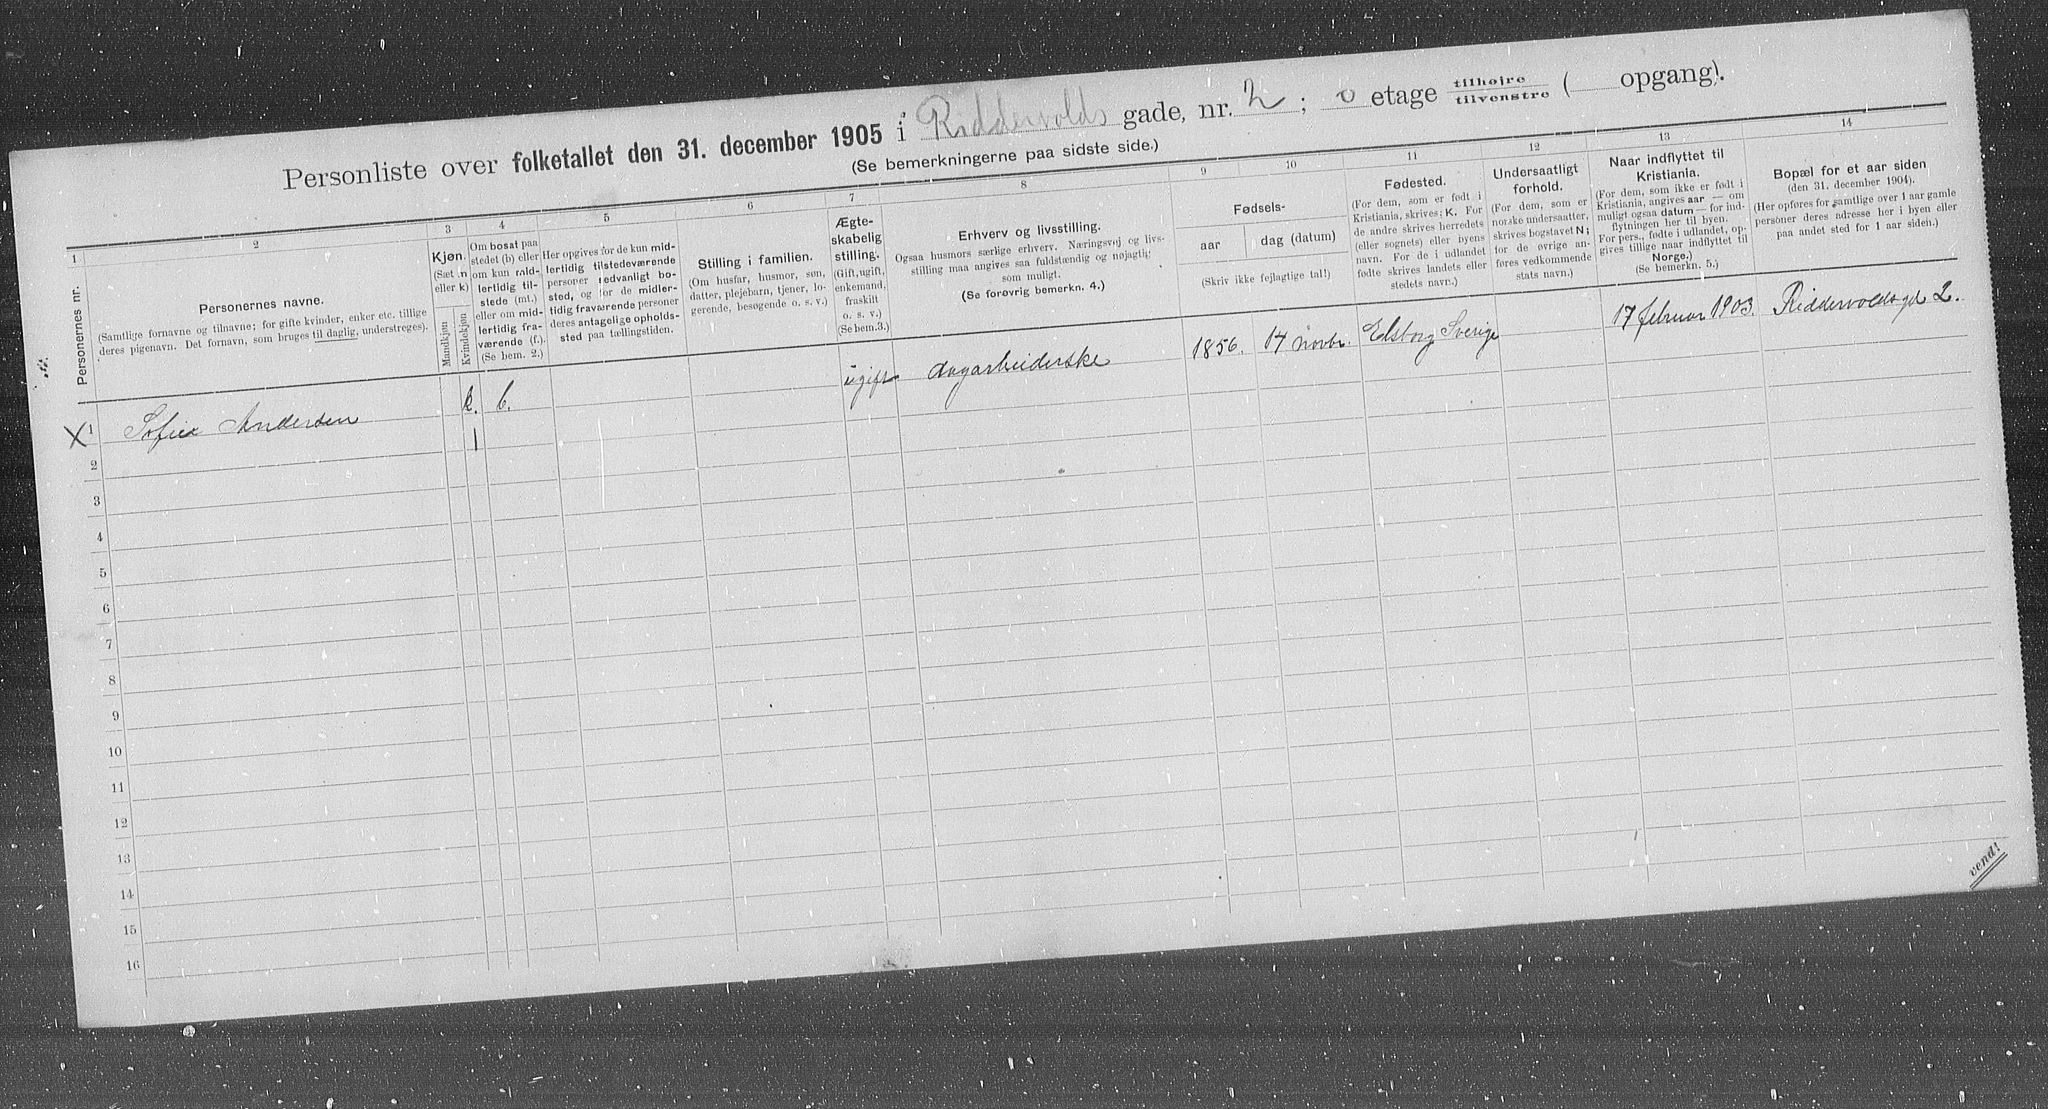 Personliste over folketallet den 31. december 1905 i Riddervolds gade, nr. 2; 0 etage tilhøire / tilvenstre ( opgang).
(Se bemerkningerne paa sidste side.)
1
Personernes nr.
2
Personernes navne.
(Samtlige fornavne og tilnavne; for gifte kvinder, enker etc. tillige
deres pigenavn. Det fornavn, som bruges til daglig, understreges).
3
Kjøn.
(Sæt m
eller k)
Mandkjøn
Kvindekjøn
4
Om bosat paa
stedet (b) eller
om kun mid-
lertidig til-
stede (mt.)
eller om mid-
lertidig fra-
værende (f.).
(Se bem. 2.)
5
Her opgives for de kun mid-
lertidig tilstedeværende
personer sedvanligt bo-
sted, og for de midler-
tidig fraværende personer
deres antagelige opholds-
sted paa tællingstiden.
6
Stilling i familien.
(Om husfar, husmor, søn,
datter, plejebarn, tjener, lo-
gerende, besøgende o. s. v.)
7
Ægte-
skabelig
stilling.
(Gift, ugift,
enkemand,
fraskilt
o. s. v.)
(Se bem. 3.)
8
Erhverv og livsstilling.
Ogsaa husmors særlige erhverv. Næringsvej og livs-
stilling maa angives saa fuldstændig og nøjagtig
som muligt.
(Se forøvrig bemerkn. 4.)
9
10
Fødsels-
aar
dag (datum)
(Skriv ikke fejlagtige tal!)
11
Fødested.
(For dem, som er født i
Kristiania, skrives: K. For
de andre skrives herredets
(eller sognets) eller byens
navn. For de i udlandet
fødte skrives landets eller
stedets navn.)
12
Undersaatligt
forhold.
(For dem, som er
norske undersaatter,
skrives bogstavet N;
for de øvrige an-
føres vedkommende
stats navn.)
13
Naar indflyttet til
Kristiania.
(For dem, som ikke er født i
Kristiania, angives aar — om
muligt ogsaa datum — for ind-
flytningen her til byen.
For pers., født i udlandet, op-
gives tillige naar indflyttet til
Norge.)
(Se bemerkn. 5.)
14
Bopæl for et aar siden
(den 31. december 1904).
(Her opføres for samtlige over 1 aar gamle
personer deres adresse her i byen eller
paa andet sted for 1 aar siden.)
X 1 Sofie Andersen k. b. ugift dagarbeiderske 1856. 14 novbr. Elsborg Sverige 17 februar 1903. Riddervoldsgd 2.
2 1
3
4
5
6
7
8
9
10
11
12
13
14
15
16
vend!